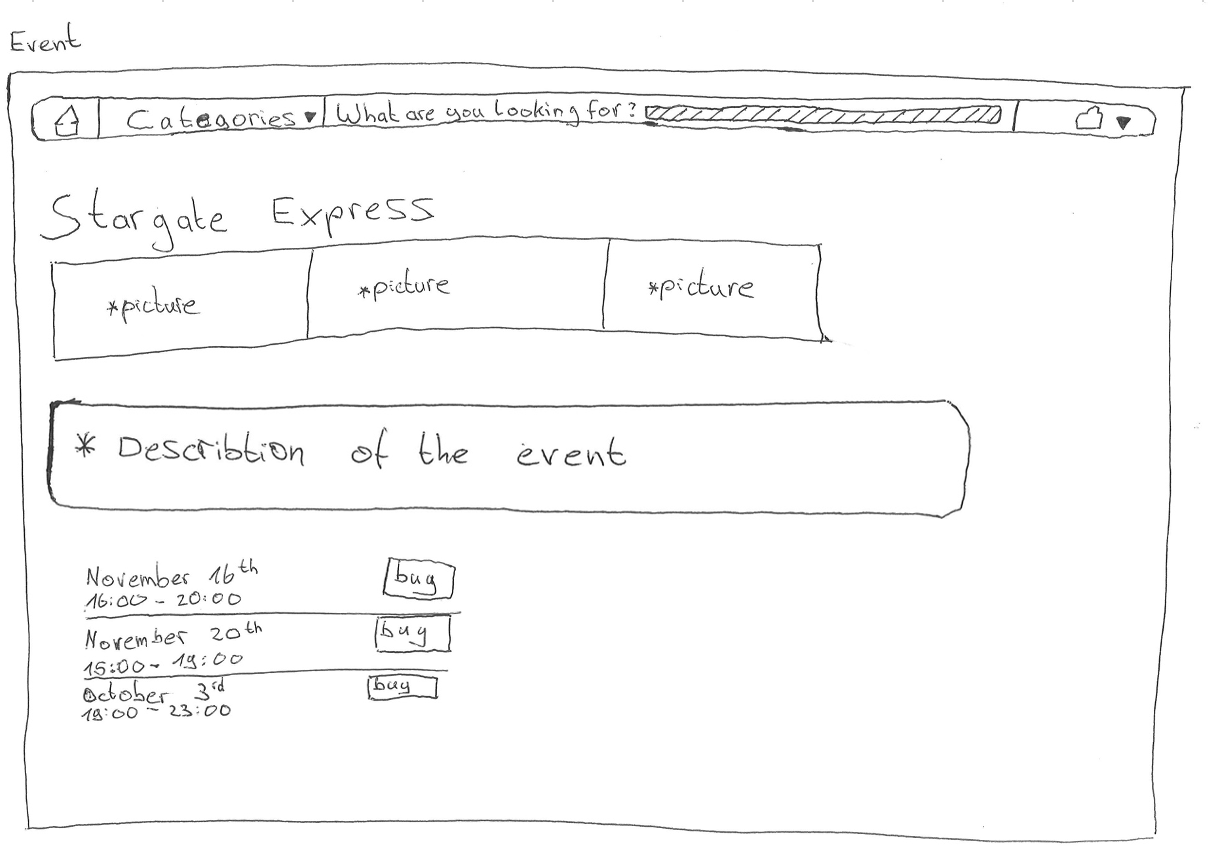 Event
Categories What are you looking for?
Stargate Express
*picture *picture *picture
* Describtion of the event
November 16th buy
16:00 - 20:00
November 20th buy
15:00 - 19:00
October 3rd buy
19:00 - 23:00